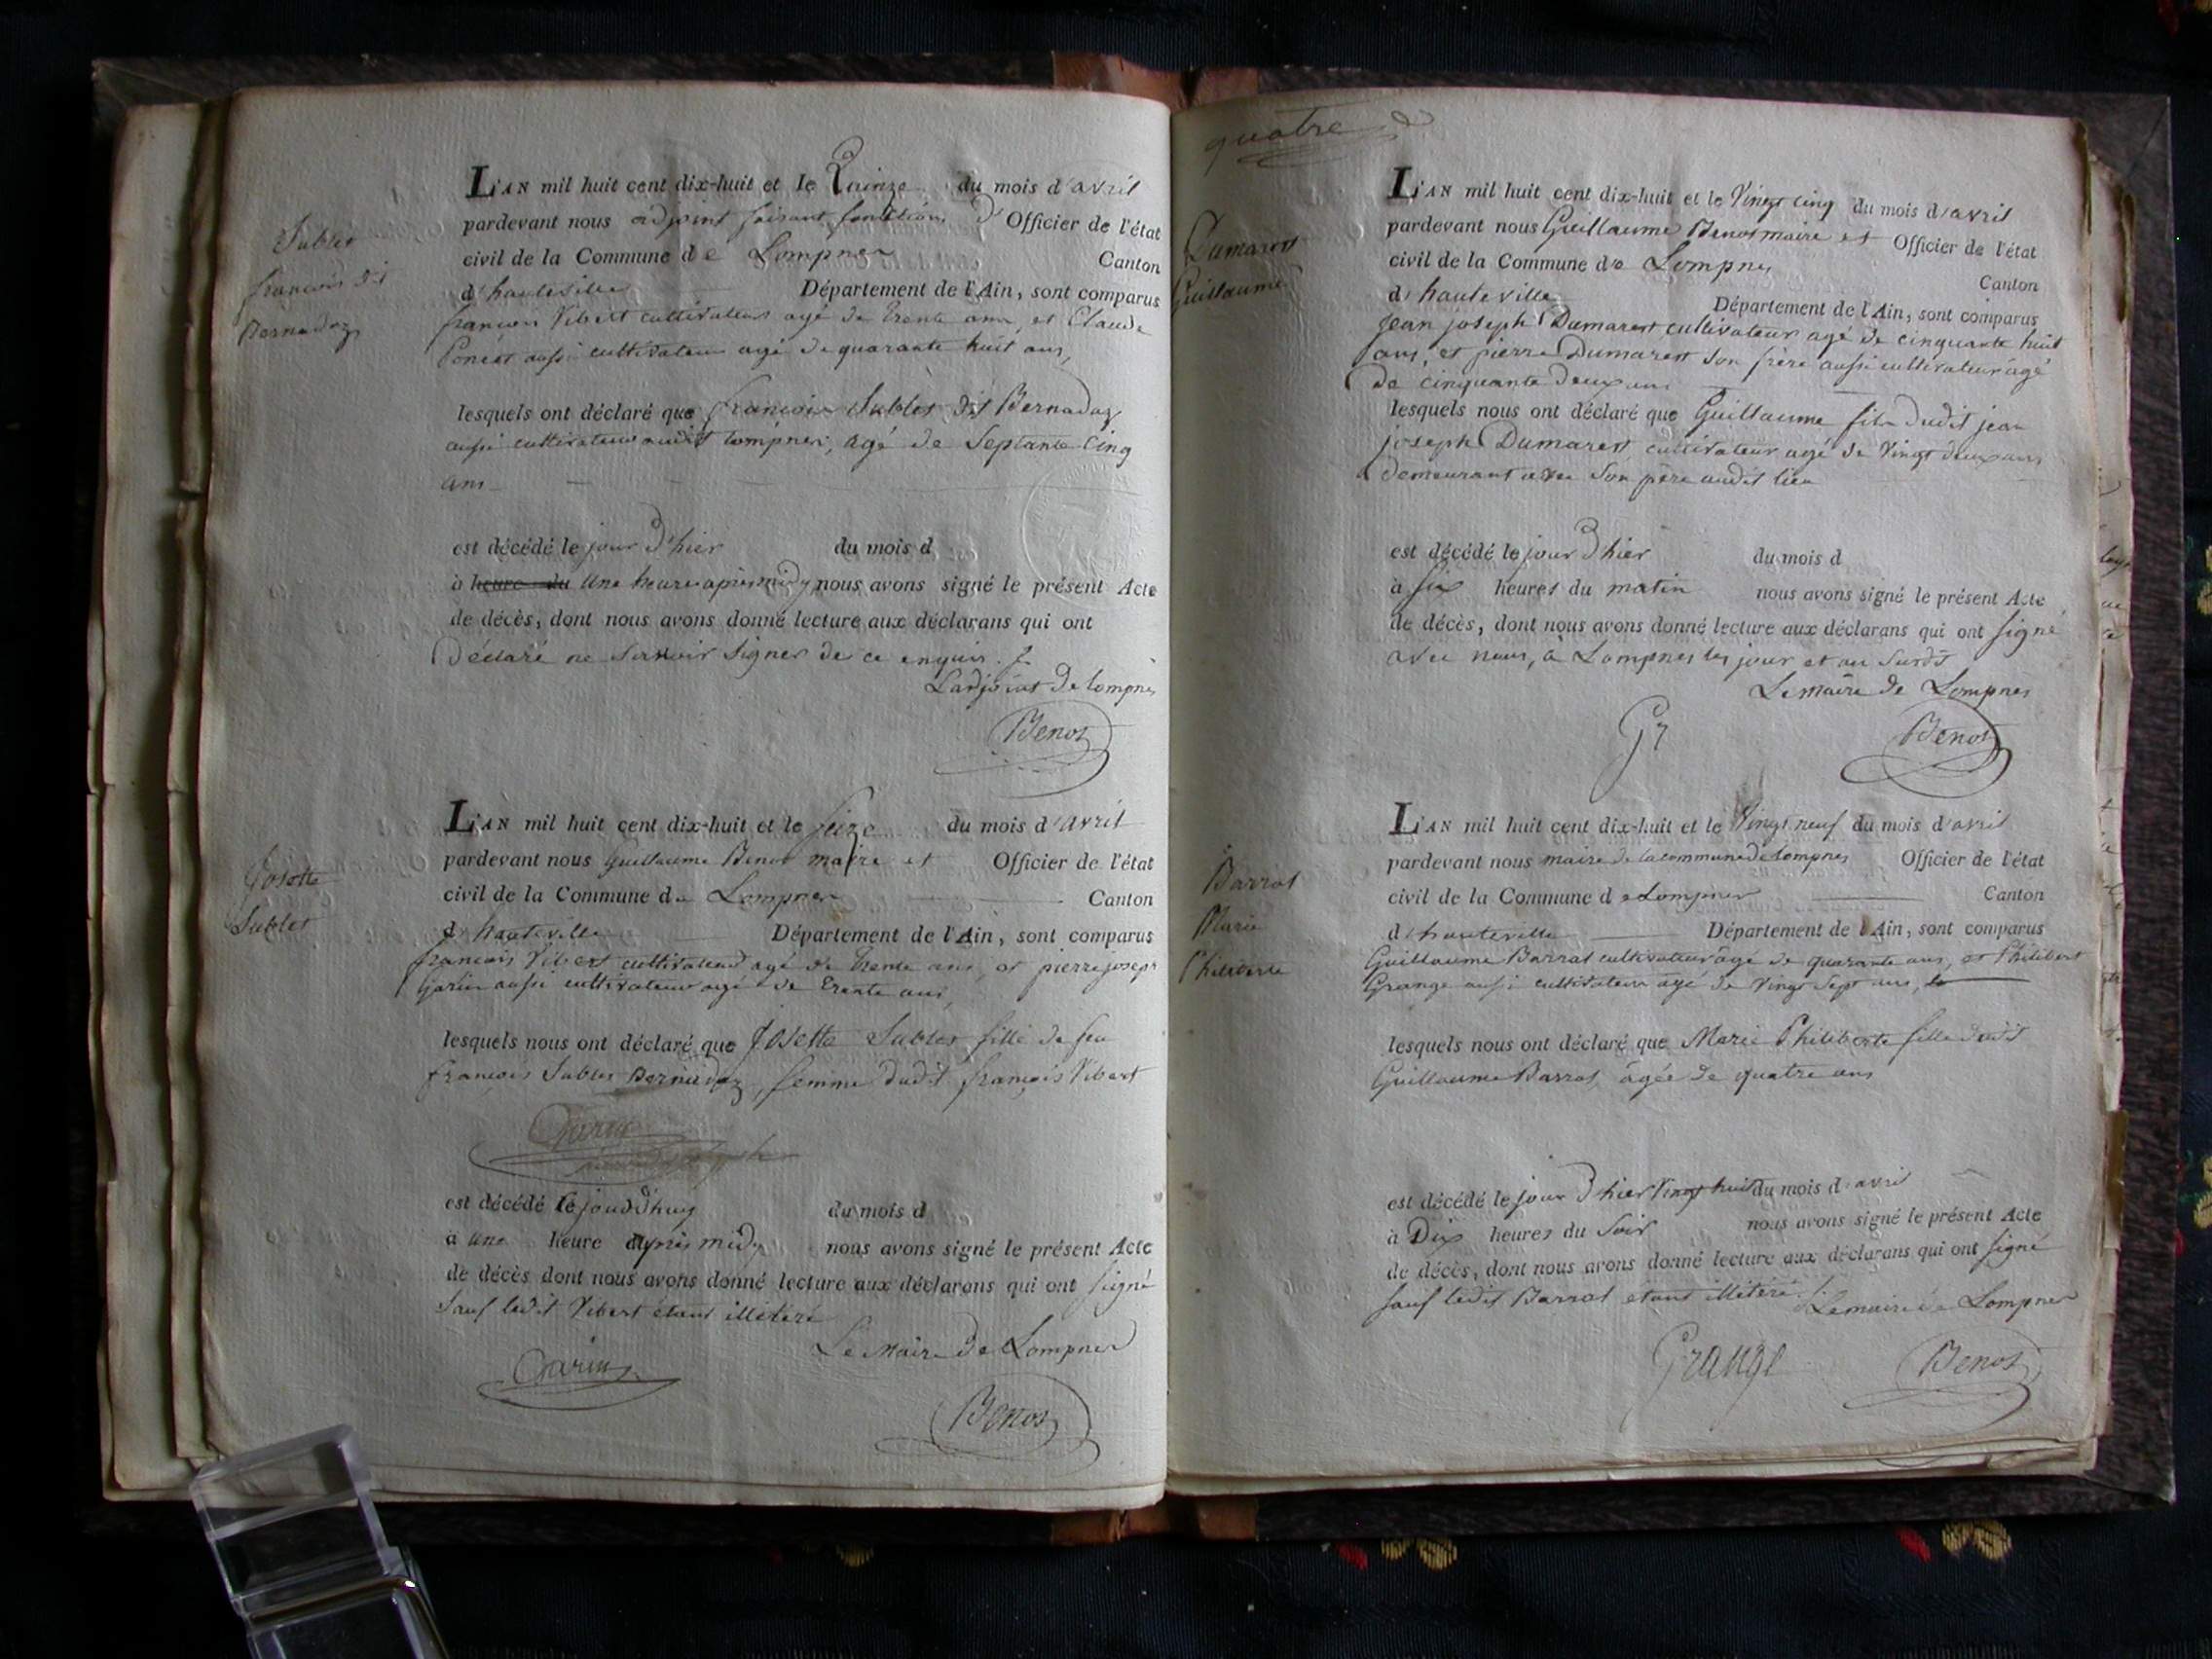 Sublet
françois dit
Bernadaz
L'AN mil huit cent dix-huit et le Quinze du mois d'avril
pardevant nous adjoint faisant fonctions d' Officier de l'état
civil de la Commune de Lompnes Canton
d'hauteville Département de l'Ain, sont comparus
françois Vibert cultivateur agé de trente ans, et Claude
Poncet aussi cultivateur agé de quarante huit ans,
lesquels ont déclaré que françois Sublet dit Bernadaz
aussi cultivateur audit Lompnes, agé de Septante Cinq
ans
est décédé le jour d'hier du mois d
à heure du une heure après midy nous avons signé le présent Acte
de décès, dont nous avons donné lecture aux déclarans qui ont
déclaré ne savoir signer de ce enquis.
L'adjoint de Lompnes
Benot
Josette
Sublet
L'AN mil huit cent dix-huit et le seize du mois d'avril
pardevant nous Guillaume Benot maire et Officier de l'état
civil de la Commune de Lompnes Canton
d'hauteville Département de l'Ain, sont comparus
françois Vibert cultivateur agé de trente ans, et pierre joseph
Garin aussi cultivateur agé de trente ans,
lesquels nous ont déclaré que Josette Sublet fille de feu
françois Sublet Bernadaz, femme dudit françois Vibert
Garin
est décédé le jourd'huy du mois d
à une heure après midy nous avons signé le présent Acte
de décès dont nous avons donné lecture aux déclarans qui ont signé
sauf ledit Vibert étant illitéré
Le Maire de Lompnes
Garin
Benot
quatre
Dumarest
Guillaume
L'AN mil huit cent dix-huit et le Vingt cinq du mois d'avril
pardevant nous Guillaume Benot maire et Officier de l'état
civil de la Commune de Lompnes
Canton
d'hauteville Département de l'Ain, sont comparus
jean joseph Dumarest cultivateur agé de cinquante huit
ans, et pierre Dumarest son frère aussi cultivateur âgé
de cinquante deux ans
lesquels nous ont déclaré que Guillaume fils dudit jean
joseph Dumarest cultivateur agé de vingt deux ans
demeurant avec son père audit lieu
est décédé le jour d'hier du mois d
à six heures du matin nous avons signé le présent Acte
de décès, dont nous avons donné lecture aux déclarans qui ont signé
avec nous, à Lompnes les jour et an susdit
Le maire de Lompnes
Benot
Barrat
Marie
Philiberte
L'AN mil huit cent dix-huit et le Vingt neuf du mois d'avril
pardevant nous maire de la commune de Lompnes Officier de l'état
civil de la Commune de Lompnes Canton
d'hauteville Département de l'Ain, sont comparus
Guillaume Barrat cultivateur agé de quarante ans, et Philibert
Grange aussi cultivateur agé de vingt sept ans,
lesquels nous ont déclaré que Marie Philiberte fille dudit
Guillaume Barrat, âgée de quatre ans
est décédé le jour d'hier vingt huit du mois d'avril
à Dix heures du Soir nous avons signé le présent Acte
de décès, dont nous avons donné lecture aux déclarans qui ont signé
sauf ledit Barrat étant illitéré.
Le maire de Lompnes
Grange
Benot